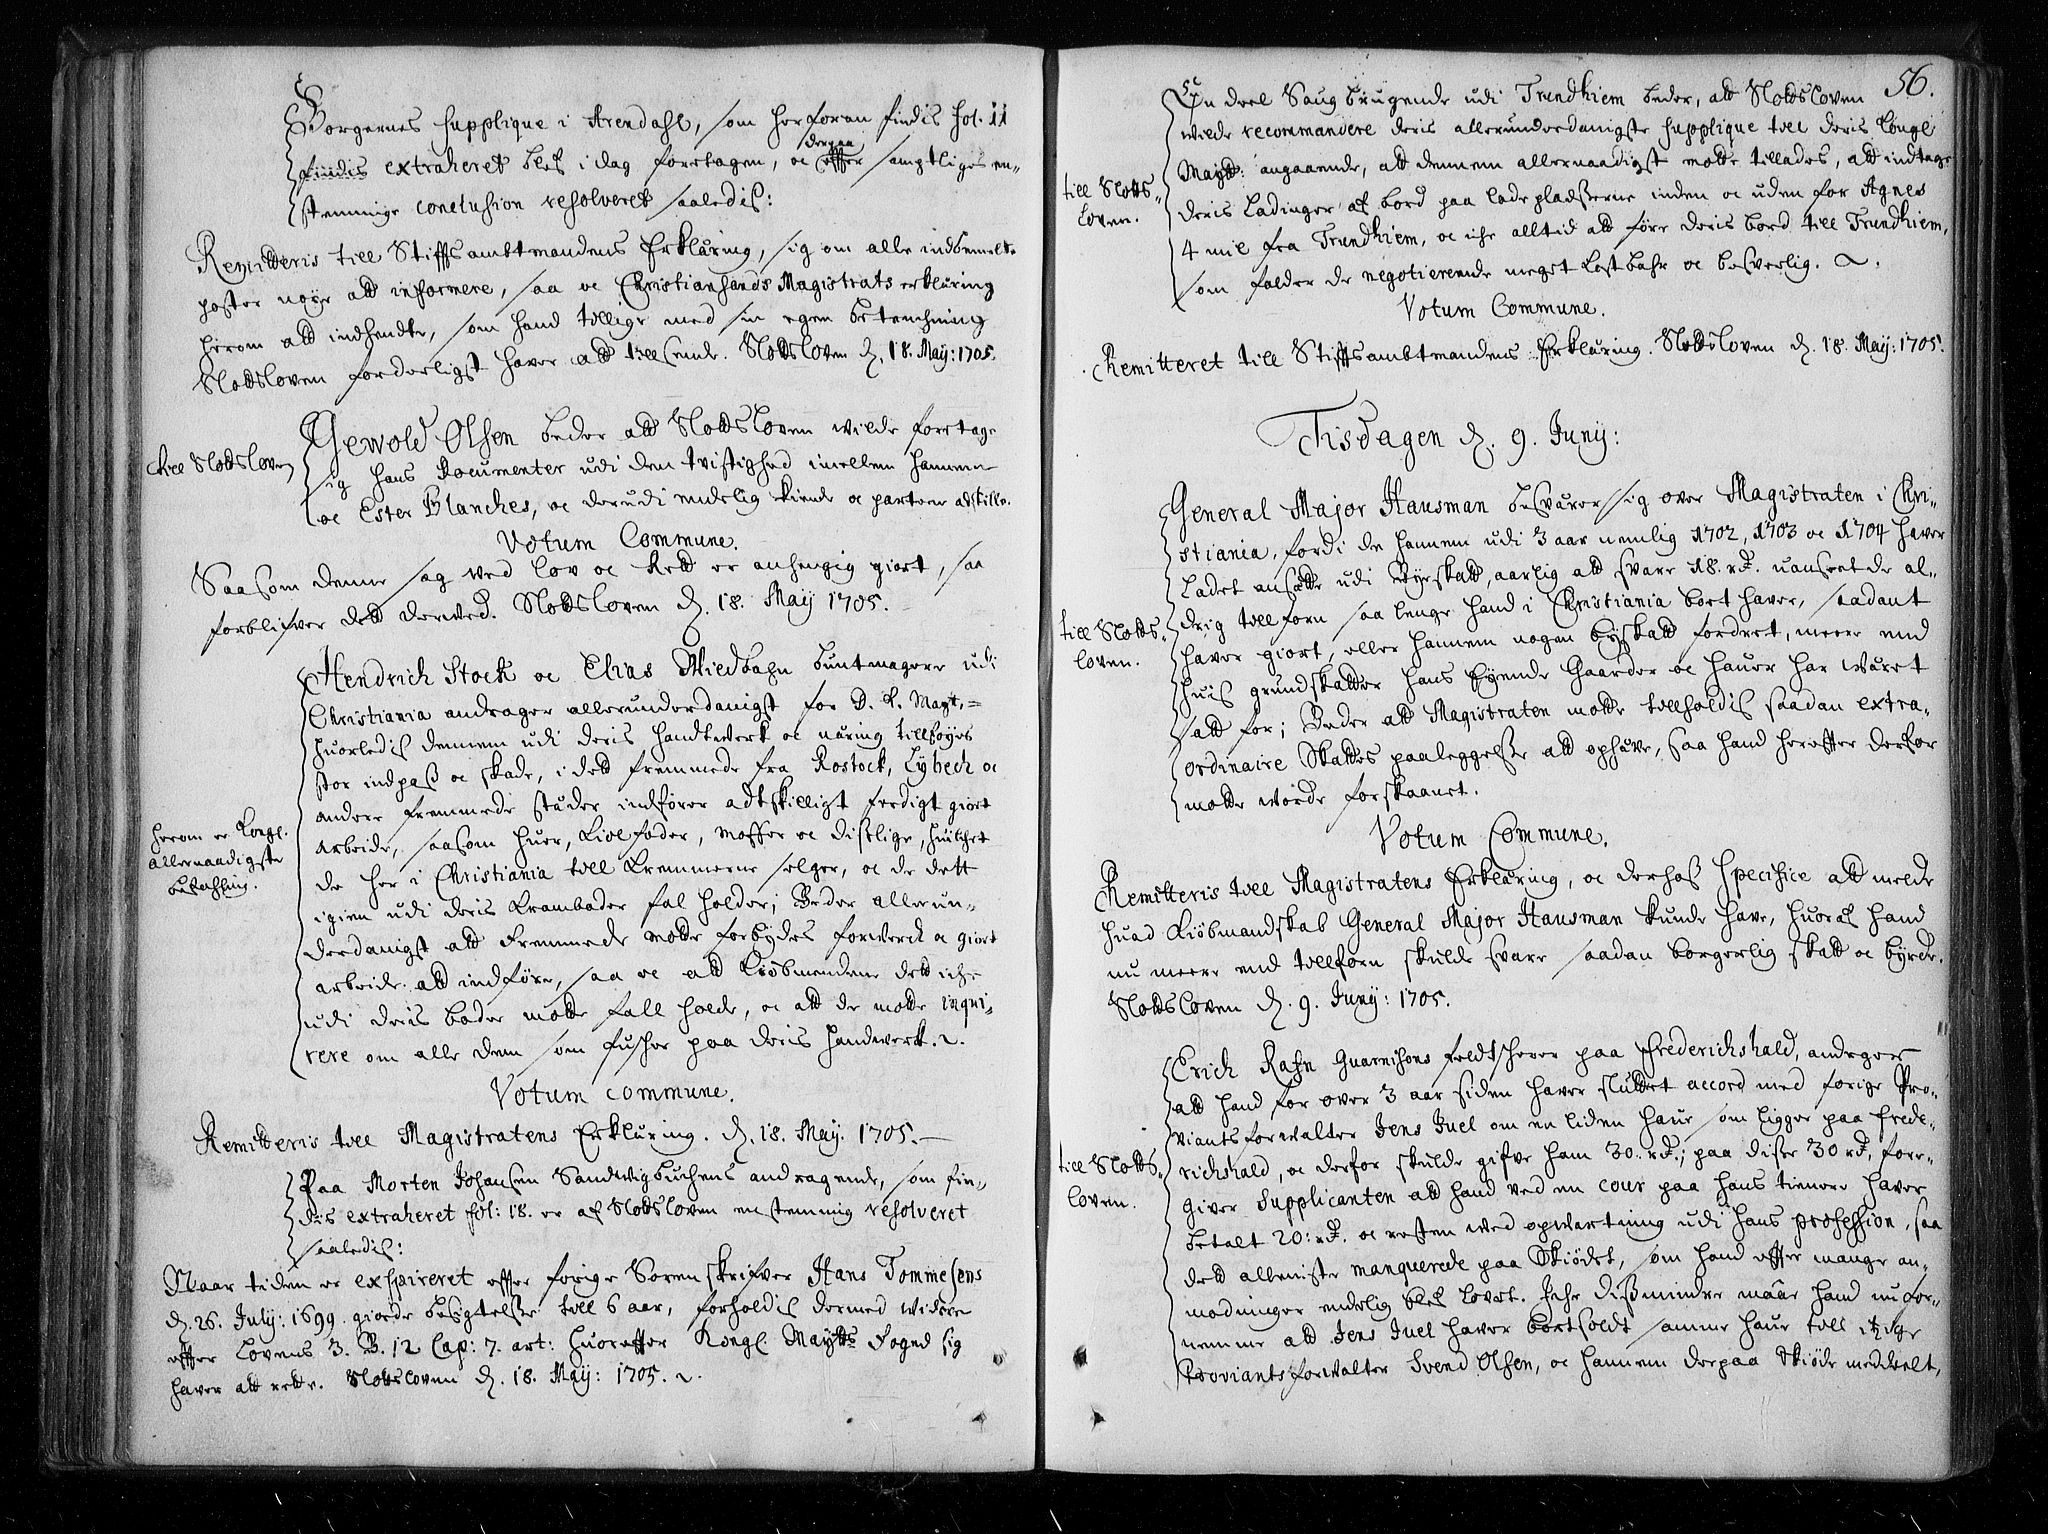 Borgernes supplique i Arendahl, som herforan findis fol. 11
findis extraheret blef i dag foretagen, oc derpaa efter samptliges en-
stemmige conclusion resolveret saaledis:
Remitteris till Stiftsambtmandens Erklæring, sig om alle indbemelte
poster nøye att informere, saa oc Christiansands Magistrats erklæring
herom att indhendte, som hand tillige med sin egen betenchning
Slodsloven forderligst haver att tillsende. Slodsloven d. 18. May: 1705.
till Slodsloven
Gewold Olsen beder att Slodsloven wilde foretage
sig hans Documenter udi den tvistighed imellem hannem
oc Ester Blanches, oc derudi endelig kiende oc parterne adskille.
Votum Commune.
Saasom denne sag ved lov oc Rett er anhengig giort, saa
forblifver dett derved. Slodsloven d. 18. May 1705.
Hendrich Stock oc Elias Wiedbahn buntmagere udi
Christiania andrager allerunderdanigst for D. K. Mayt.
huorledis dennem udi deris handtverk oc næring tillføyes
stor indpass oc skade, i dett fremmede fra Rostock, Lybech oc
andre fremmede stæder indfører adtskilligt ferdigt giort
arbeide, saasom huer, Liolfoder, moffer oc disslige, huilchet
de her i Christiania till Kremmerne selger, oc de dett
igien udi deris Kramboder fal holder; Beder allerun-
derdanigst att Fremmede motte forbydes forverck oc giort
arbeide att indføre, saa oc att Kiøbmendene dett iche
udi deris boder motte fall holde, oc att de motte inqui-
rere om alle dem som fusher paa deris handtwerk.
herom er Kongl.
allernaadigste
befahling.
Votum commune.
Remitteris till Magistratens Erklæring. d. 18. May. 1705.
Paa Morten Johansen Sandwigbuchens andragende, som fin-
dis extraheret fol: 18. er af Slodsloven enstemmig resolveret
saaledis:
Naar tiden er exspireret efter forige Sorenskrifver Hans Tommesens
d. 26. July: 1699. giorde besigtelsse till 6 aar, forholdis dermed widere
efter Lovens 3. B. 12 Cap: 7. art: huorefter Kongl. Maytts Foged sig
haver att rette. Slodsloven d. 18. May: 1705.
56.
En deel Saug brugende udi Trundhiem beder, att Slodsloven
wilde recommandere deris allerunderdanigste supplique till deris Kongl
Maytt: angaaende, att dennem allernaadigst motte tillades, att indtage
deris Ladinger af bord paa ladepladsserne inden oc uden for Agnes
4 mil fra Trundhiem, oc iche alltid att føre deris bord till Trundhiem,
som falder de negotierende meget kostbahr oc besverlig.
till Slods-
loven.
Votum Commune.
Remitteret till Stiftsambtmandens Erklæring. Slodsloven d. 18. May: 1705.
Tisdagen d. 9. Juny:
General Major Hausman besværer sig over Magistraten i Chri-
stiania, fordi de hannem udi 3 aar nemlig 1702, 1703 oc 1704 haver
Ladet ansætte udi Byeskatt, aarlig att svare 18. rd. uanseet de al-
drig till forn saa lenge hand i Christiania boet haver, saadant
haver giort, eller hannem nogen byskatt fordret, meere end
huis grundskatter hans Eyende Gaarder oc hauer har wæret
satt for; Beder att Magistraten motte tillholdis saadan extra-
ordinaire Skattes paaleggelsse att ophæve, saa hand herefter derfor
motte worde forskaanet.
till Slods-
loven.
Votum Commune.
Remitteris till Magistratens Erklæring, oc derhos specifice att melde
huad Kiøbmandskab General Major Hausman kunde have, huoraf hand
nu meere end tillforn skulde svare saadan borgerlig skatt oc byrde.
Slodsloven d. 9. Juny: 1705.
Erich Rahn Guarnisons feldtscherer paa Frederichshald, andrager
att hand for over 3 aar siden haver sluttet accord med forige Pro-
viantsforwalter Jens Juel om en liden haue som ligger paa Frede-
richshald, oc derfor skulde gifve ham 30. rd.; paa disse 30 rd, fore-
giver Supplicanten att hand ved en cour paa hans tienere haver
betalt 20: rd. oc resten med opwartning udi hans profession, saa
dett alleniste manquerede paa Skiødet, som hand efter mange an-
modninger endelig blef lovet. Iche dissmindre maae hand nu for-
nemme att Jens Juel haver bortsoldt samme haue till itzige
Proviantsforwalter Svend Olsen, oc hannem derpaa Skiøde meddeelt,
till Slods-
loven.